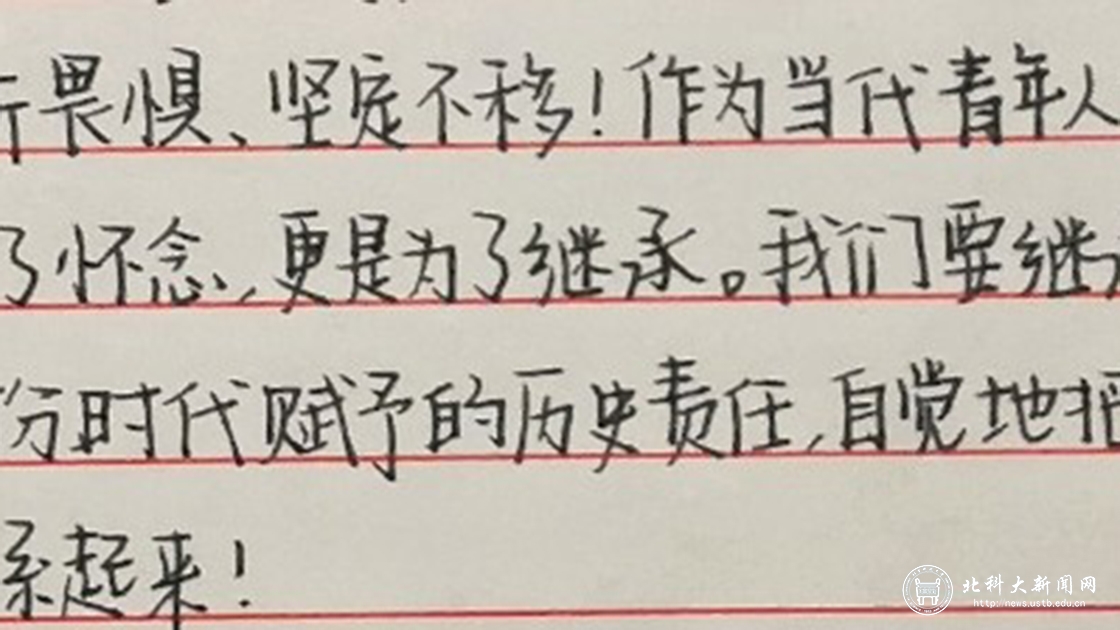 畏惧、坚定不移！作为当代青年人
了怀念，更是为了继承。我们要继
份时代赋予的历史责任，自觉地把
系起来！
北科大新闻网
http://news.ustb.edu.cn